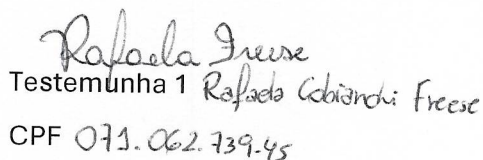 Rafaela Freese
Testemunha 1 Rafaela Cobianchi Freese
CPF 071.062.739-45